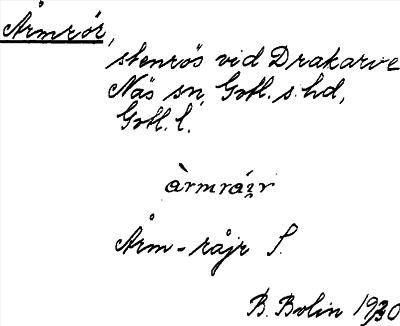 Årmrör,
stenrös vid Drakarve
Näs sn, Gotl. s. hd,
Gotl. l.
àrmrái̯r
Årm-råjr S.
B. Bolin 1930